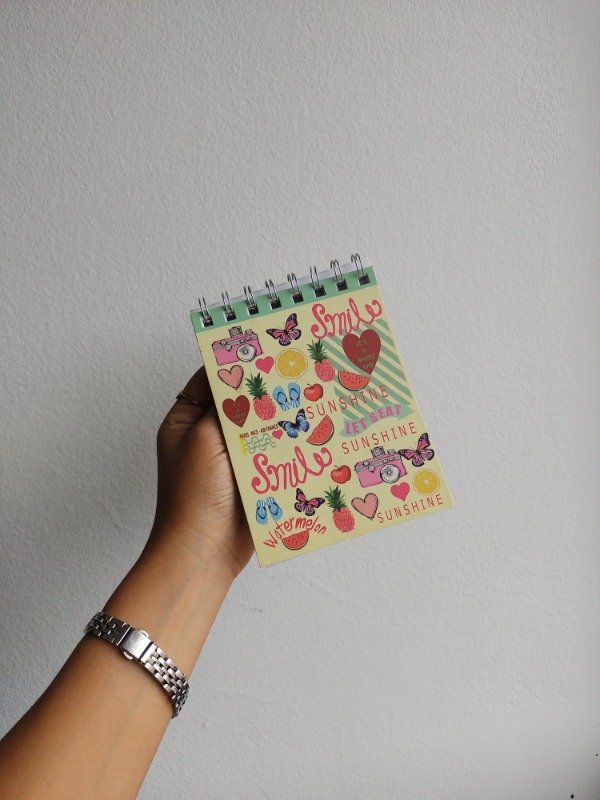 Smile
IT'S
A
HAPPY
DAY
SUNSHINE
LET'S EAT
SUNSHINE
Smile
SUNSHINE
Watermelon